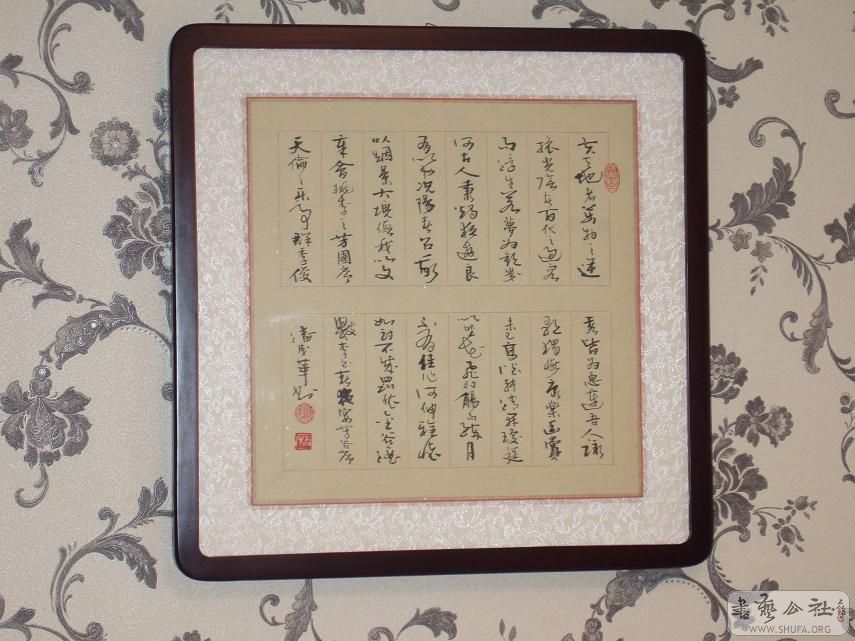 夫天地者萬物之逆
旅光陰者百代之過客
而浮生若夢為歡幾
何古人秉燭夜遊良
有以也況陽春召我
以烟景大塊假我以文
章會桃李之芳園序
天倫之樂事群季俊
秀皆為惠連吾人詠
歌獨慚康樂幽賞
未已高談轉清開瓊筵
以坐花飛羽觴而醉月
不有佳作何伸雅懷
如詩不成罰依金谷酒
數李白春夜宴序
潘華
書藝公社
WWW.SHUFA.ORG